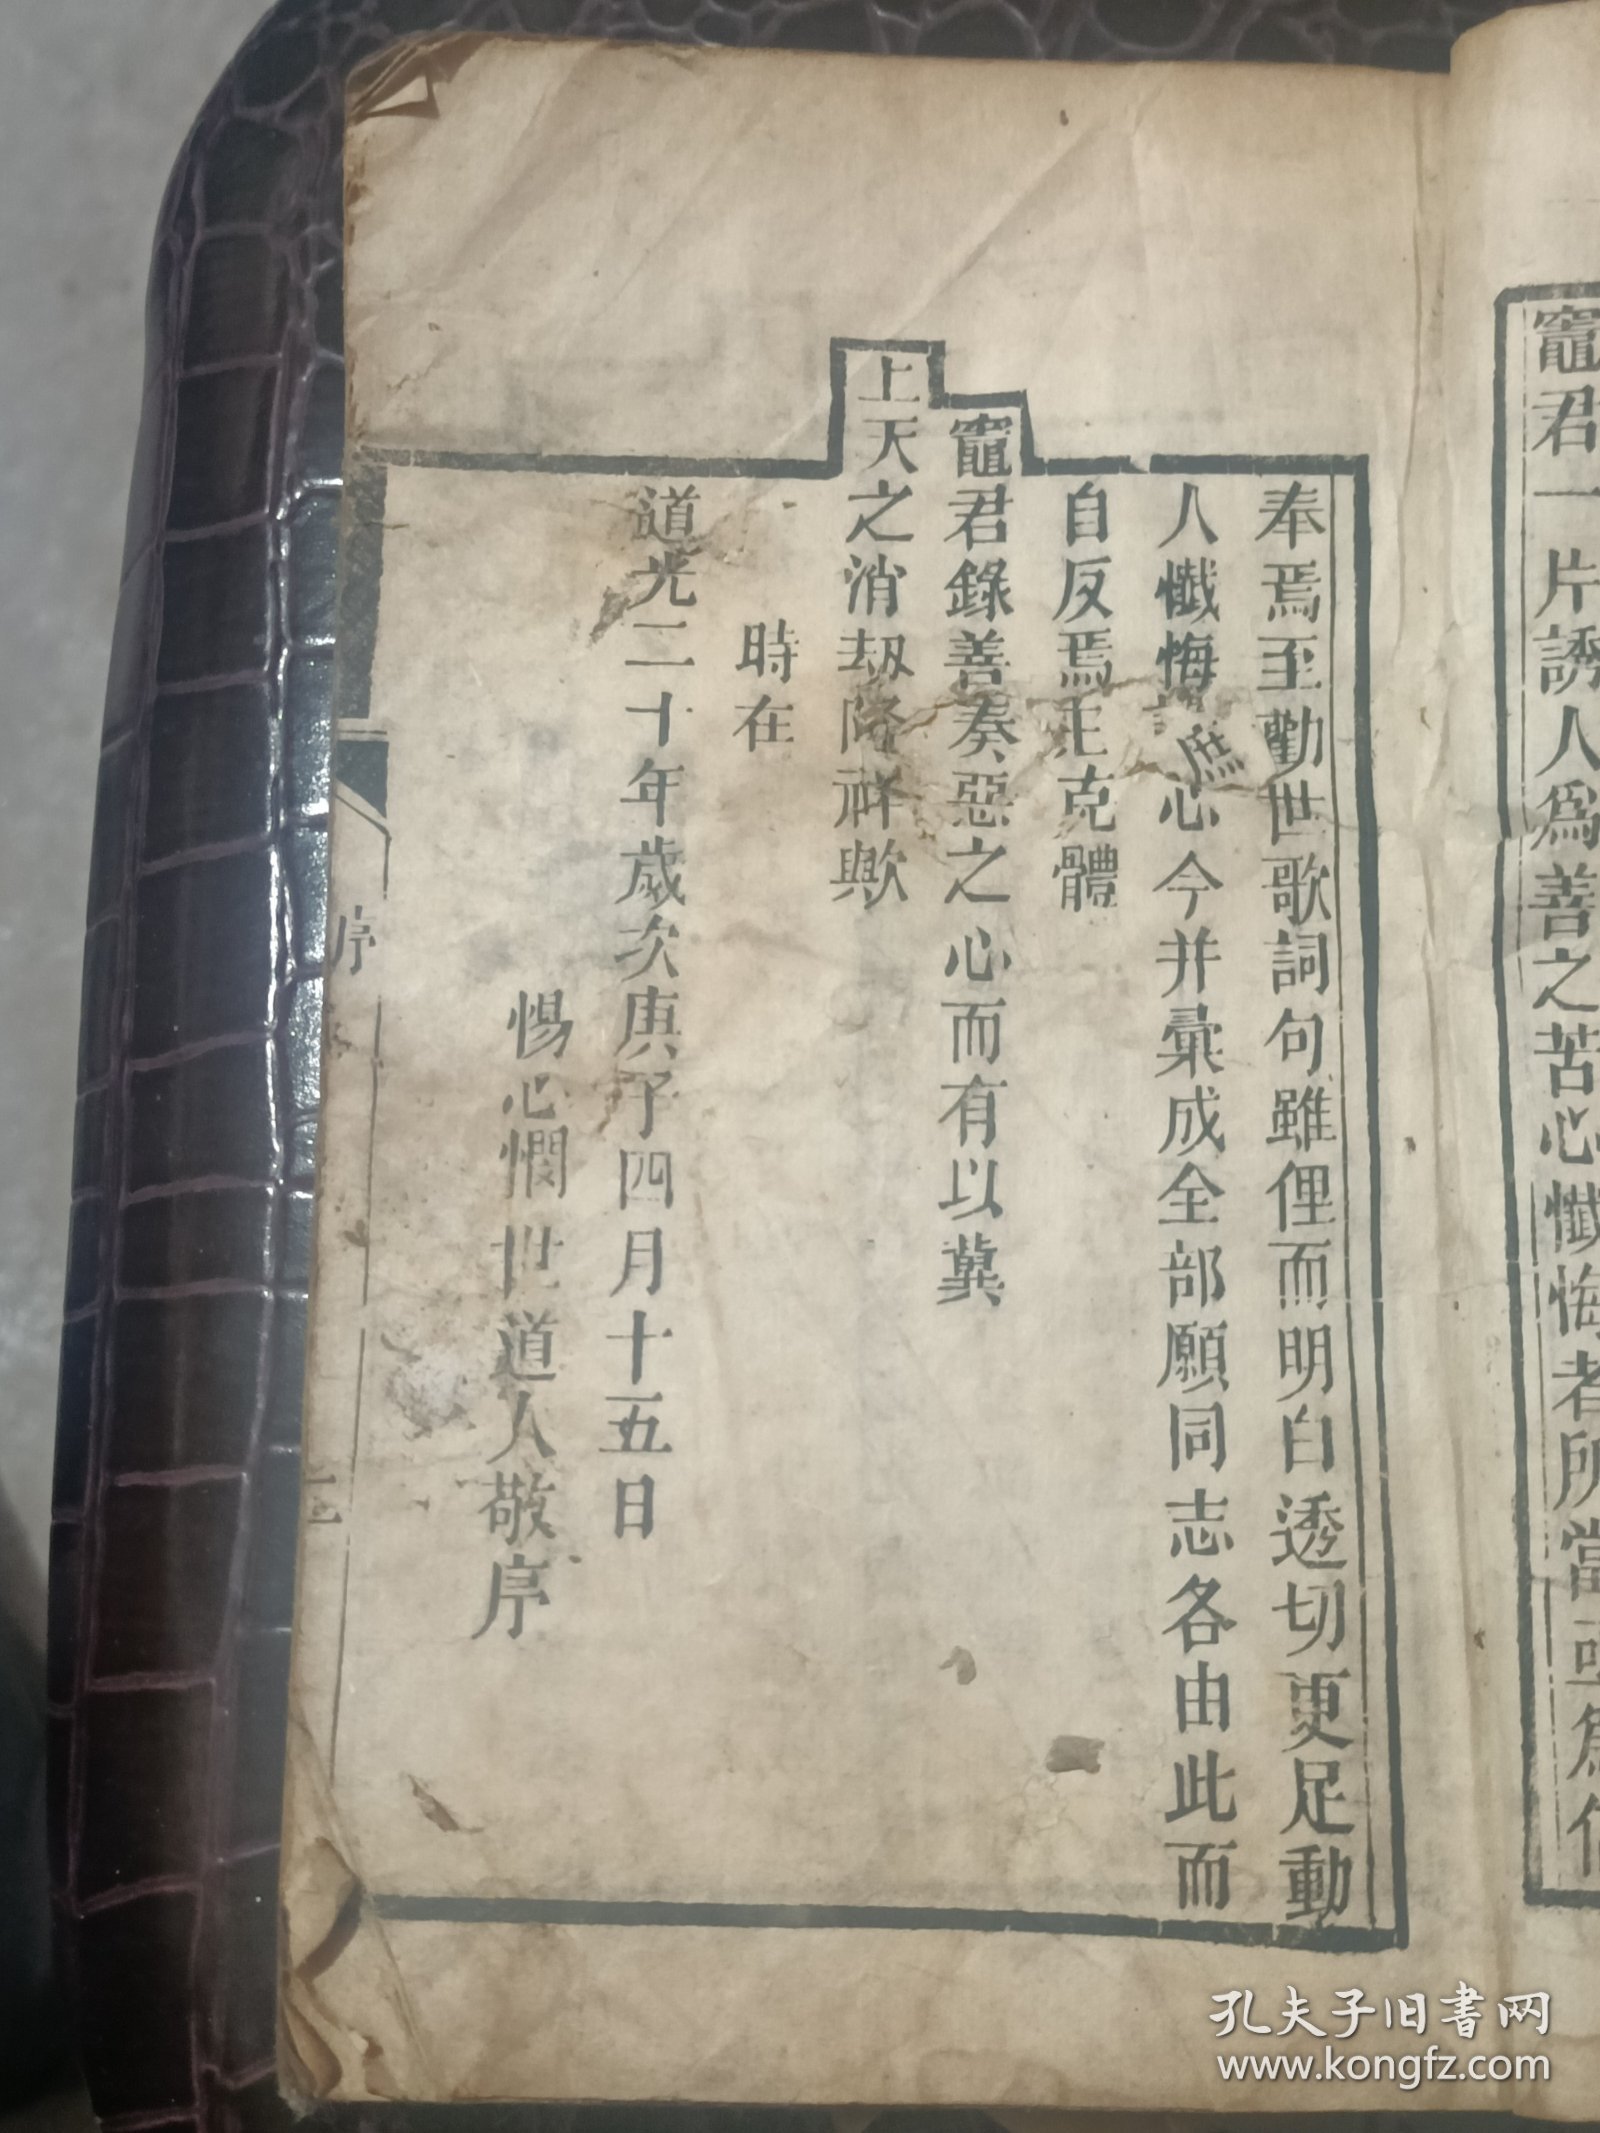 竈君一片誘人為善之苦心懺悔者所當亟為信
奉焉至勸世歌詞句雖俚而明白透切更足動
人懺悔之心今并彙成全部願同志各由此而
庶
自反焉上克體
竈君錄善奏惡之心而有以冀
上天之消劫降祥歟
時在
道光二十年歲次庚子四月十五日
惕心憫世道人敬序
序
三
孔夫子旧书网
www.kongfz.com